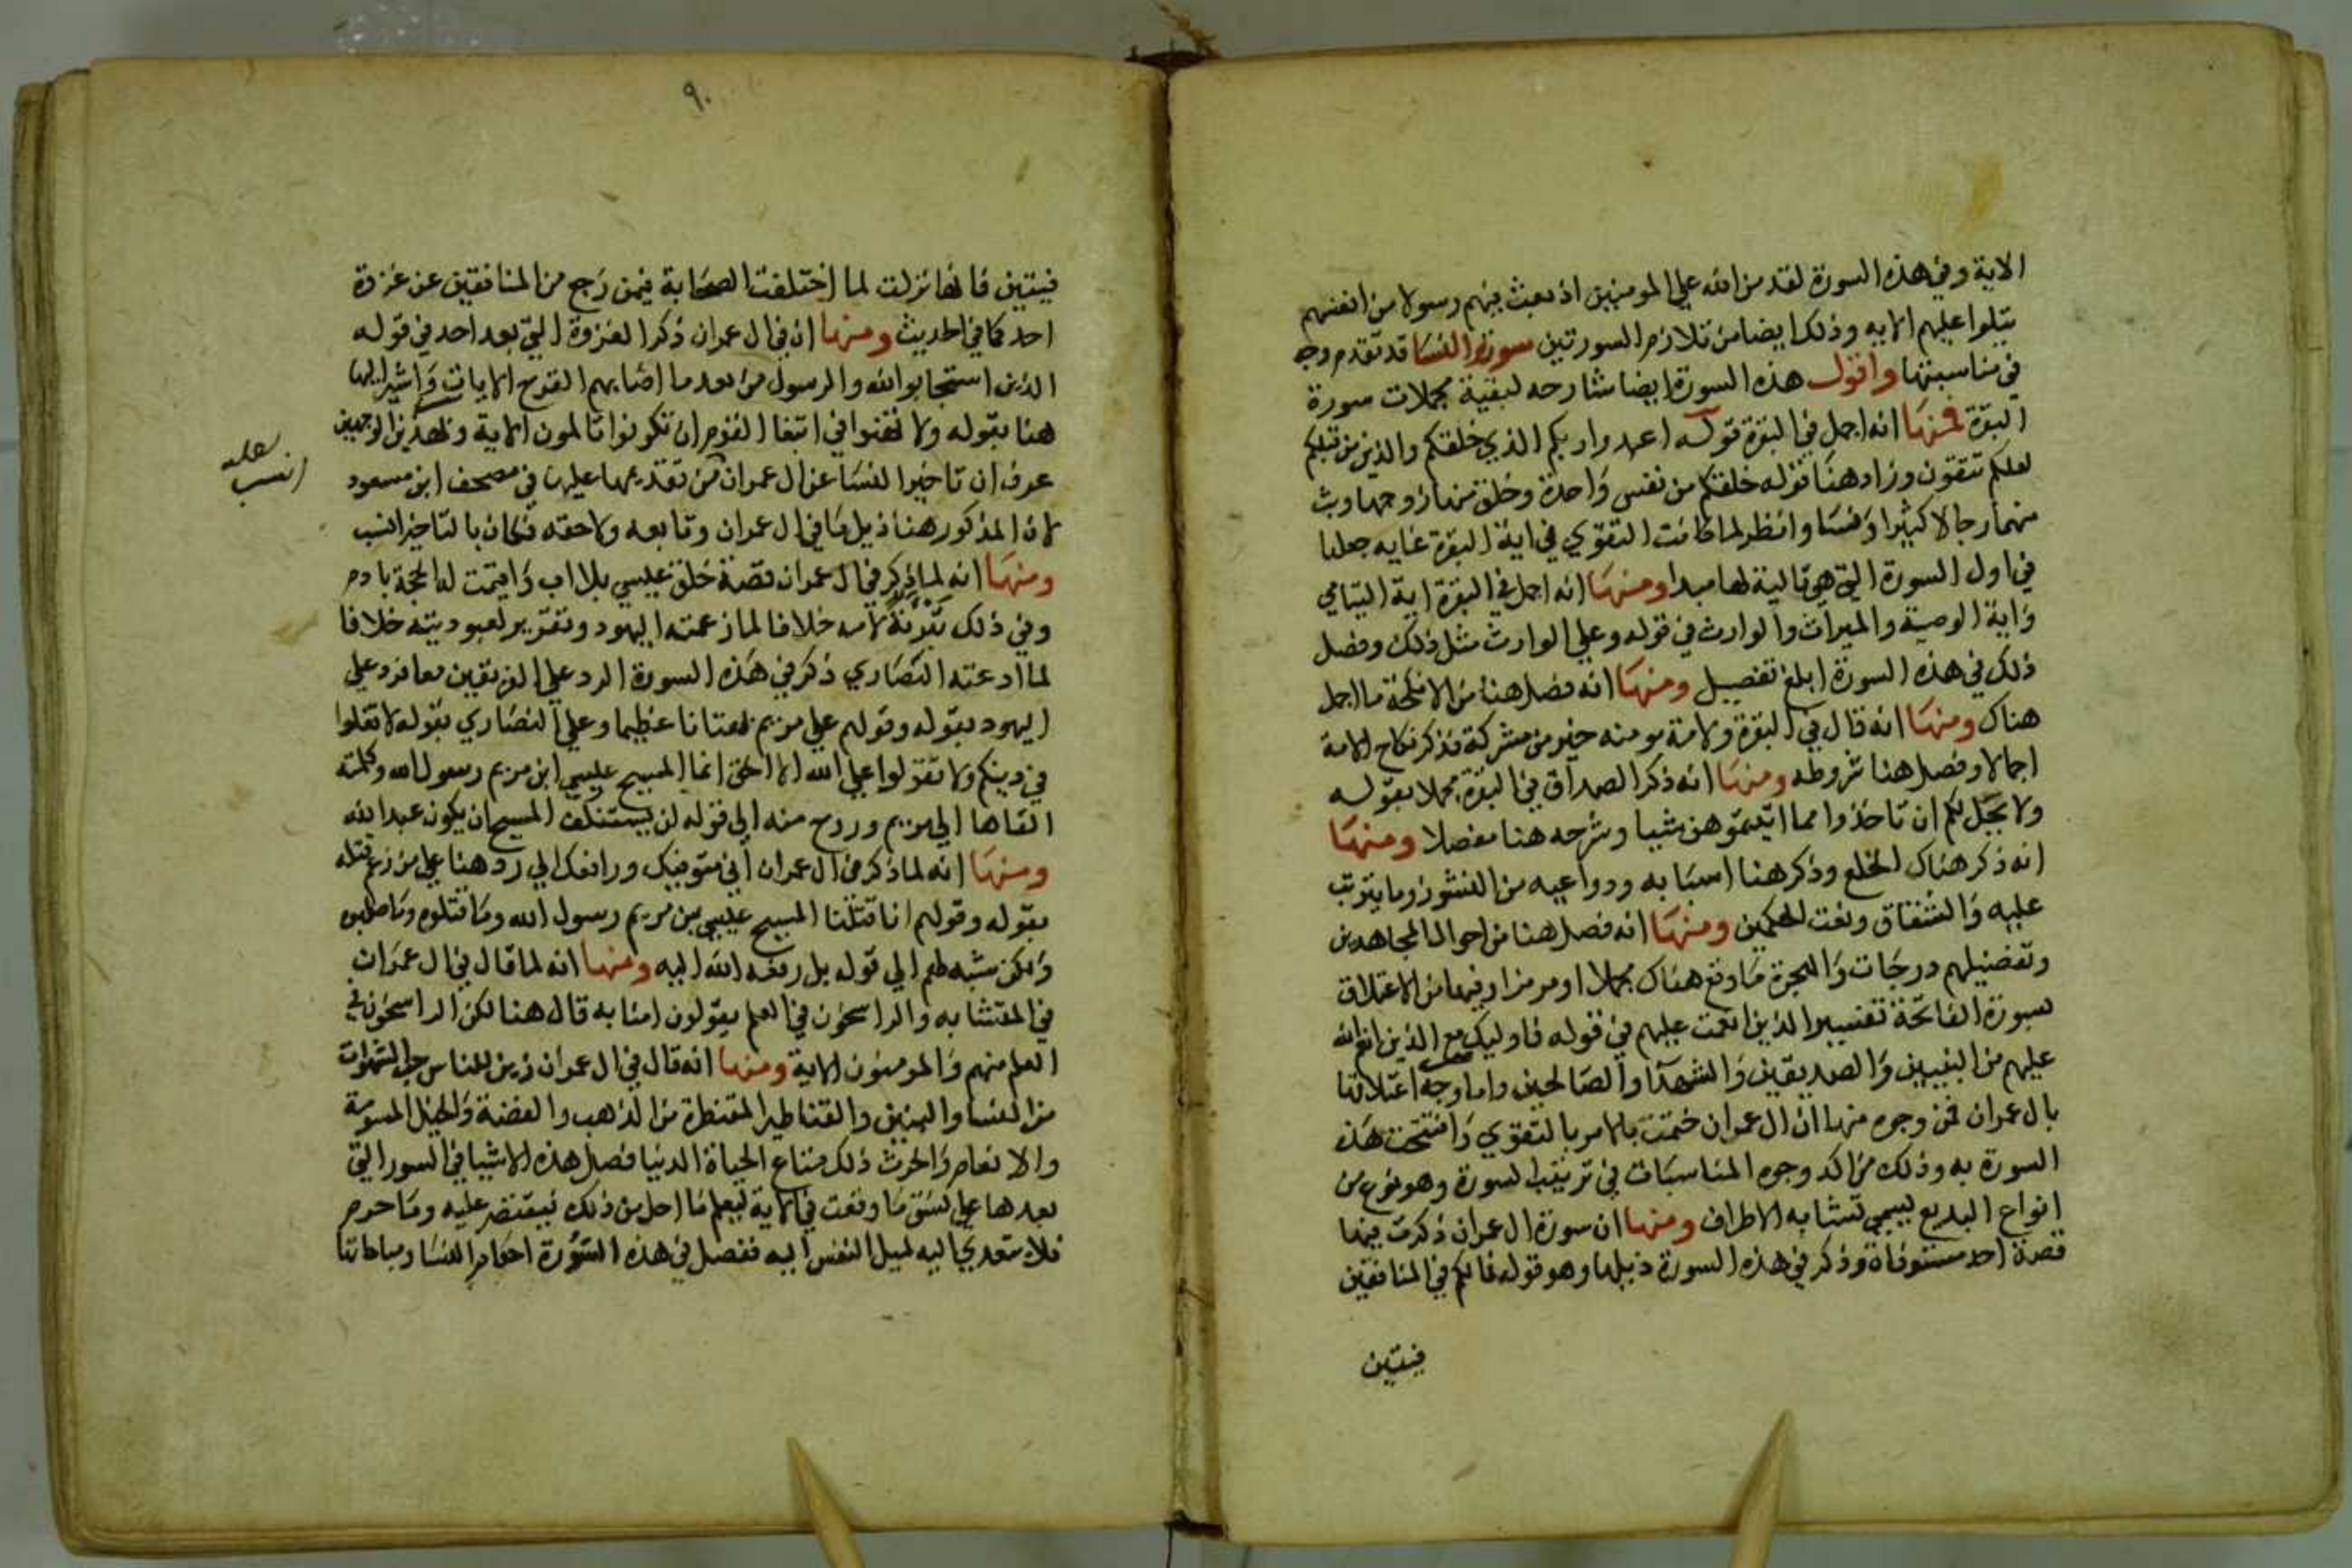 الاية وفي هذه السورة لقد من الله علي المومنين اذ بعث فيهم رسولا من انفسهم
يتلوا عليهم الايه وذلك ايضا من تلازم السورتين سورة النسا قد تقدم وجه
في مناسبتها واقول هذه السورة ايضا شارحه لبقية مجملات سورة
البقرة فمنها انه اجمل في البقرة قوله اعبدوا ربكم الذي خلقكم والذين من قبلكم
لعلكم تتقون وزاد هنا قوله خلقكم من نفس واحدة وخلق منها زوجها وبث
منهما رجالا كثيرا ونسا وانظر لما كانت التقوي في اية البقرة غايه جعلها
في اول السورة التي هي تالية لها مبدا ومنها انه اجمل في البقرة اية اليتامي
واية الوصية والميراث والوارث في قوله وعلي الوارث مثل ذلك وفصل
ذلك في هذه السورة ابلغ تفصيل ومنها انه فصل هنا من الانكحة ما اجمل
هناك ومنها انه قال في البقرة ولامة مومنه خير من مشركة فذكر نكاح الامة
اجمالا وفصل هنا شروطه ومنها انه ذكر الصداق في البقرة مجملا بقوله
ولا يحل لكم ان تاخذوا مما اتيتموهن شيا وشرحه هنا مفصلا ومنها
انه ذكر هناك الخلع وذكر هنا اسبابه ودواعيه من النشوز وما يترتب
عليه والشقاق وبعث الحكمين ومنها انه فصل هنا من احوال المجاهدين
وتفضيلهم درجات والهجرة ما وقع هناك مجملا او مرمزا وفيها من الاعتلاق
سورة الفاتحة تفسير الذين انعمت عليهم في قوله فاوليك مع الذين انعم الله
عليهم من النبيين والصديقين والشهدا والصالحين واما وجه اعتلاقها
بال عمران فمن وجوه منها ان ال عمران ختمت بالامر بالتقوي وافتتحت هذه
السورة به وذلك من اكد وجوه المناسبات في ترتيب السورة وهو نوع من
انواع البديع يسمي تشابه الاطراف ومنها ان سورة ال عمران ذكرت فيها
قصة احد مستوفاة وذكر في هذه السورة ذيلها وهو قوله فما لكم في المنافقين
فيتين
٩٠
فيتين فانها نزلت لما اختلفت الصحابة فيمن رجع من المنافقين عن غزوة
احد كما في الحديث ومنها ان في ال عمران ذكر الغزوة التي بعد احد في قوله
الذين استجابوا لله والرسول من بعد ما اصابهم القرح الايات واشير اليها
هنا بقوله ولا تهنوا في ابتغا القوم ان تكونوا تالمون الاية وبهذين الوجهين
عرف ان تاخير النسا عن ال عمران من تقديمها عليها في مصحف ابن مسعود
لعله
انسب
لان المذكور هنا ذيل ما في ال عمران وتابعه ولاحقه فكان بالتاخير انسب
ومنها انه لما ذكر في ال عمران قصة خلق عيسي بلا اب واقيمت له الحجة بادم
وفي ذلك تبرئة لامه خلافا لما زعمته اليهود وتقرير لعبوديته خلافا
لما ادعته النصاري ذكر في هذه السورة الرد علي الفريقين معا فرد علي
اليهود بقوله وقولهم علي مريم بهتانا عظيما وعلي النصاري بقوله لا تغلوا
في دينكم ولا تقولوا علي الله الا الحق انما المسيح عيسي ابن مريم رسول الله وكلمته
القاها الي مريم وروح منه الي قوله لن يستنكف المسيح ان يكون عبدا لله
ومنها انه لما ذكر في ال عمران اني متوفيك ورافعك الي رد هنا علي من زعم قتله
بقوله وقولهم انا قتلنا المسيح عيسي بن مريم رسول الله وما قتلوه وما صلبوه
ولكن شبه لهم الي قوله بل رفعه الله اليه ومنها انه لما قال في ال عمران
في المتشابه والراسخون في العلم يقولون امنا به قال هنا لكن الراسخون في
العلم منهم والمومنون الاية ومنها انه قال في ال عمران زين للناس حب الشهوات
من النسا والبنين والقناطير المقنطرة من الذهب والفضة والخيل المسومة
والانعام والحرث ذلك متاع الحياة الدنيا فصل هذه الاشيا في السور التي
بعدها علي نسق ما وقعت في الاية ليعلم ما احل من ذلك فيقتصر عليه وما حرم
فلا يتعدي اليه لميل النفس اليه ففصل في هذه السورة احكام النسا ومباحاتها